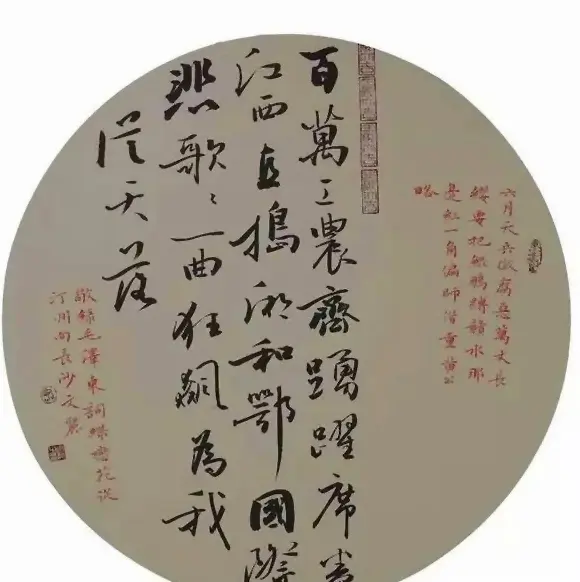 六月天兵征腐惡萬丈長
纓要把鯤鵬縛贛水那
邊紅一角偏師借重黃公
略
百萬工農齊踴躍席卷
江西直搗湘和鄂國際
悲歌〻一曲狂飆為我
從天落
敬錄毛澤東詞蝶戀花從
汀州向長沙文麗